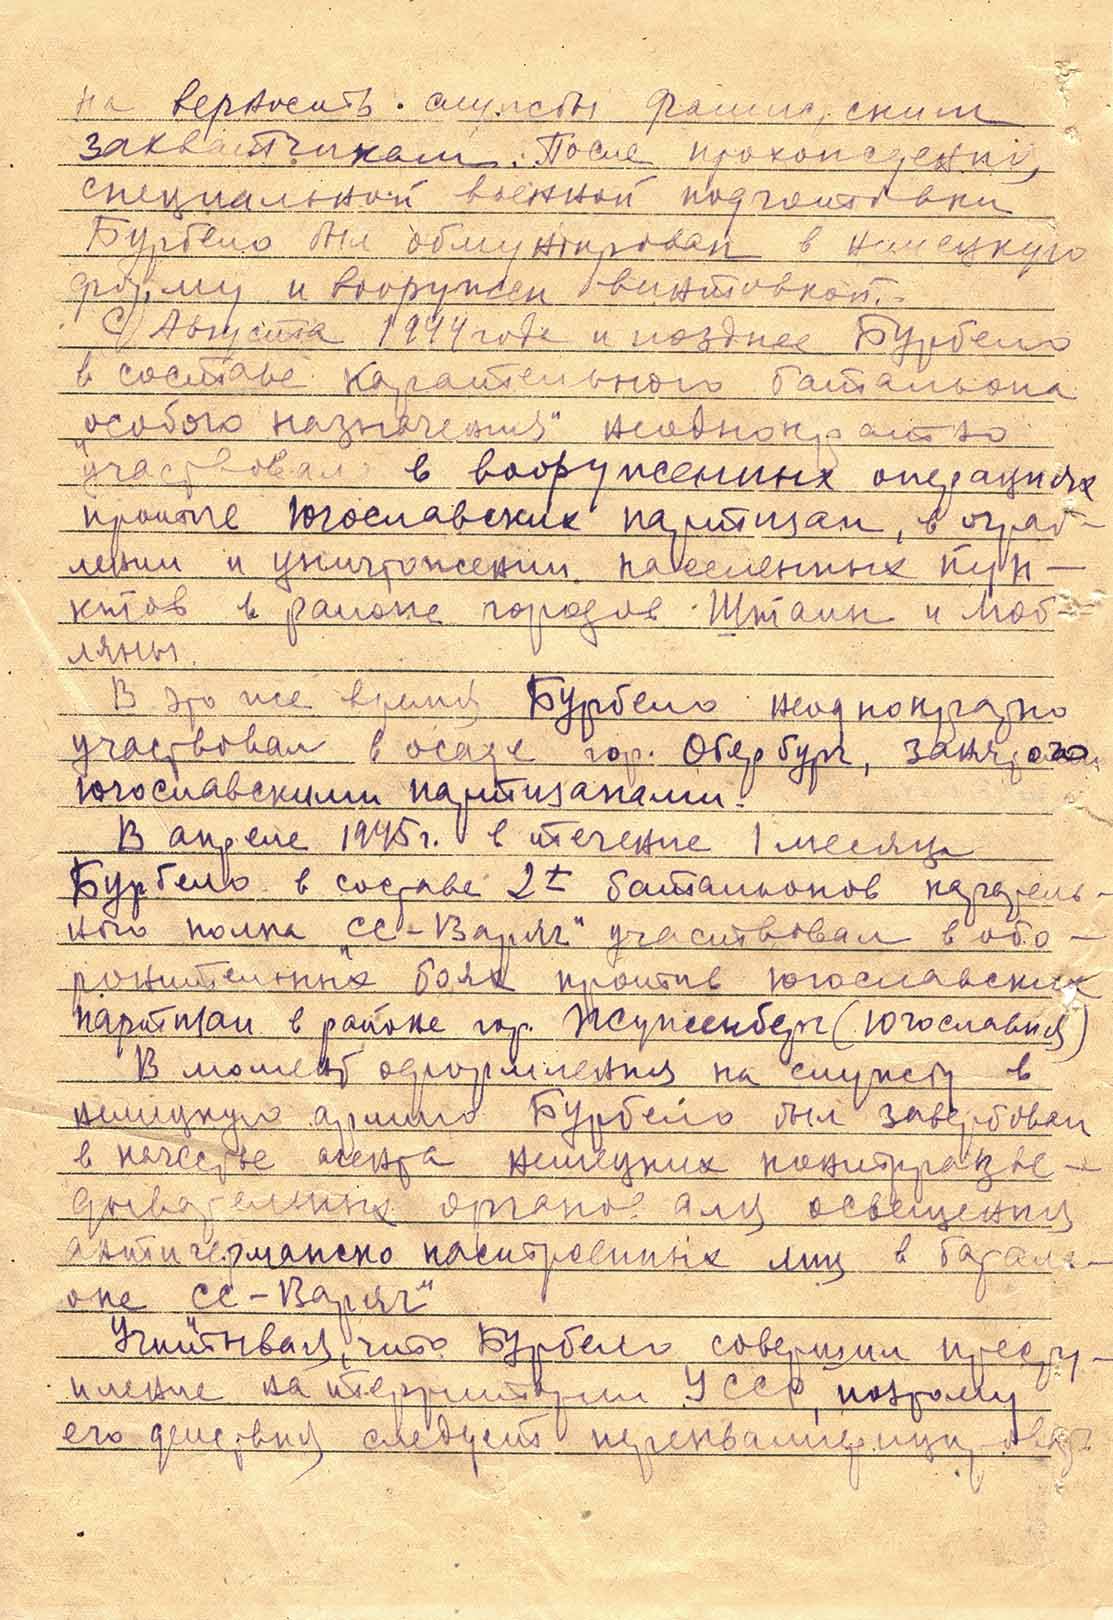 на верность службы фашистским
захватчикам. После прохождения,
специальной военной подготовки
Бурбело был обмундирован в немецкую
форму и вооружен винтовкой.-
С Августа 1944 года и позднее Бурбело
в составе карательного батальона
„особого назначения" неоднократно
участвовал в вооруженных операциях
против югославских партизан, в ограб-
лении и уничтожении населенных пун-
ктов в районе городов Штаин и Люб-
ляны.
В это же время Бурбело неоднократно
участвовал в осаде гор. Обербург,
югославскими партизанами.
В апреле 1945 г. в течение 1 месяца
Бурбело в составе 2х батальонов каратель-
ного полка „СС-Варяг" участвовал в обо-
ронительных боях против югославских
партизан в районе гор. Жуженберг (Югославия)
В момент оформления на службу в
немецкую армию Бурбело был завербован
в качестве агента немецких контрразве-
дывательных органов для освещения
антигермански настроенных лиц в баталь-
оне „СС-Варяг"
Учитывая, что Бурбело совершил престу-
пление на территории УССР, поэтому
его действия следует переквалифицировать